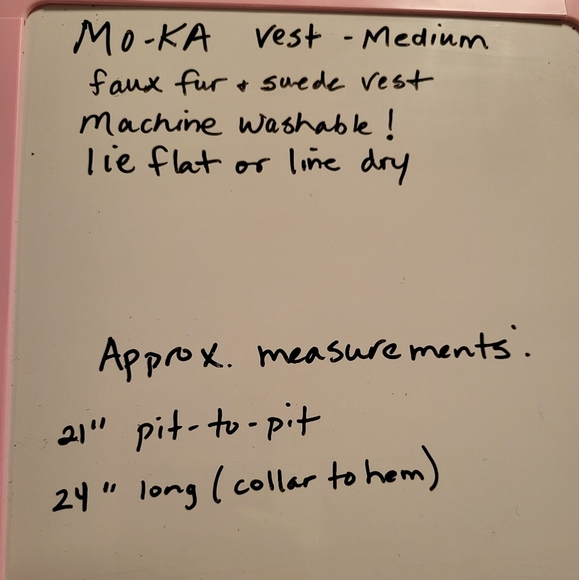 MO-KA vest - Medium
faux fur + suede vest
Machine washable!
lie flat or line dry
Approx. measurements:
21" pit-to-pit
24" long (collar to hem)